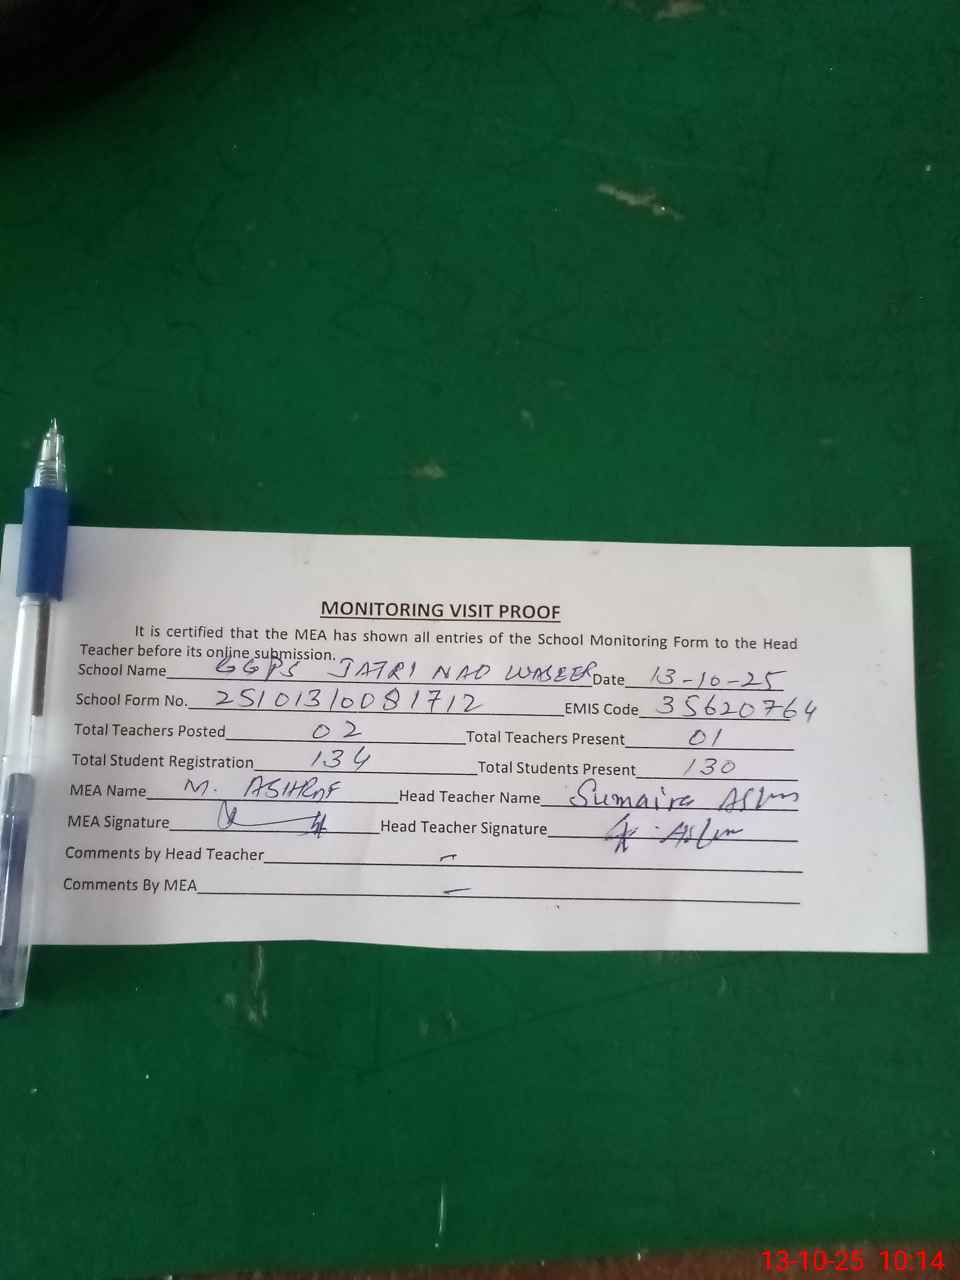 MONITORING VISIT PROOF
It is certified that the MEA has shown all entries of the School Monitoring Form to the Head
Teacher before its online submission.
School Name GGPS JATRI NAO WASEER Date 13-10-25
School Form No. 25101310081712 EMIS Code 35620764
Total Teachers Posted 02 Total Teachers Present 01
Total Student Registration 134 Total Students Present 130
MEA Name M. ASHRAF Head Teacher Name Sumaira Aslam
MEA Signature Head Teacher Signature
Comments by Head Teacher —
Comments By MEA —
13-10-25 10:14